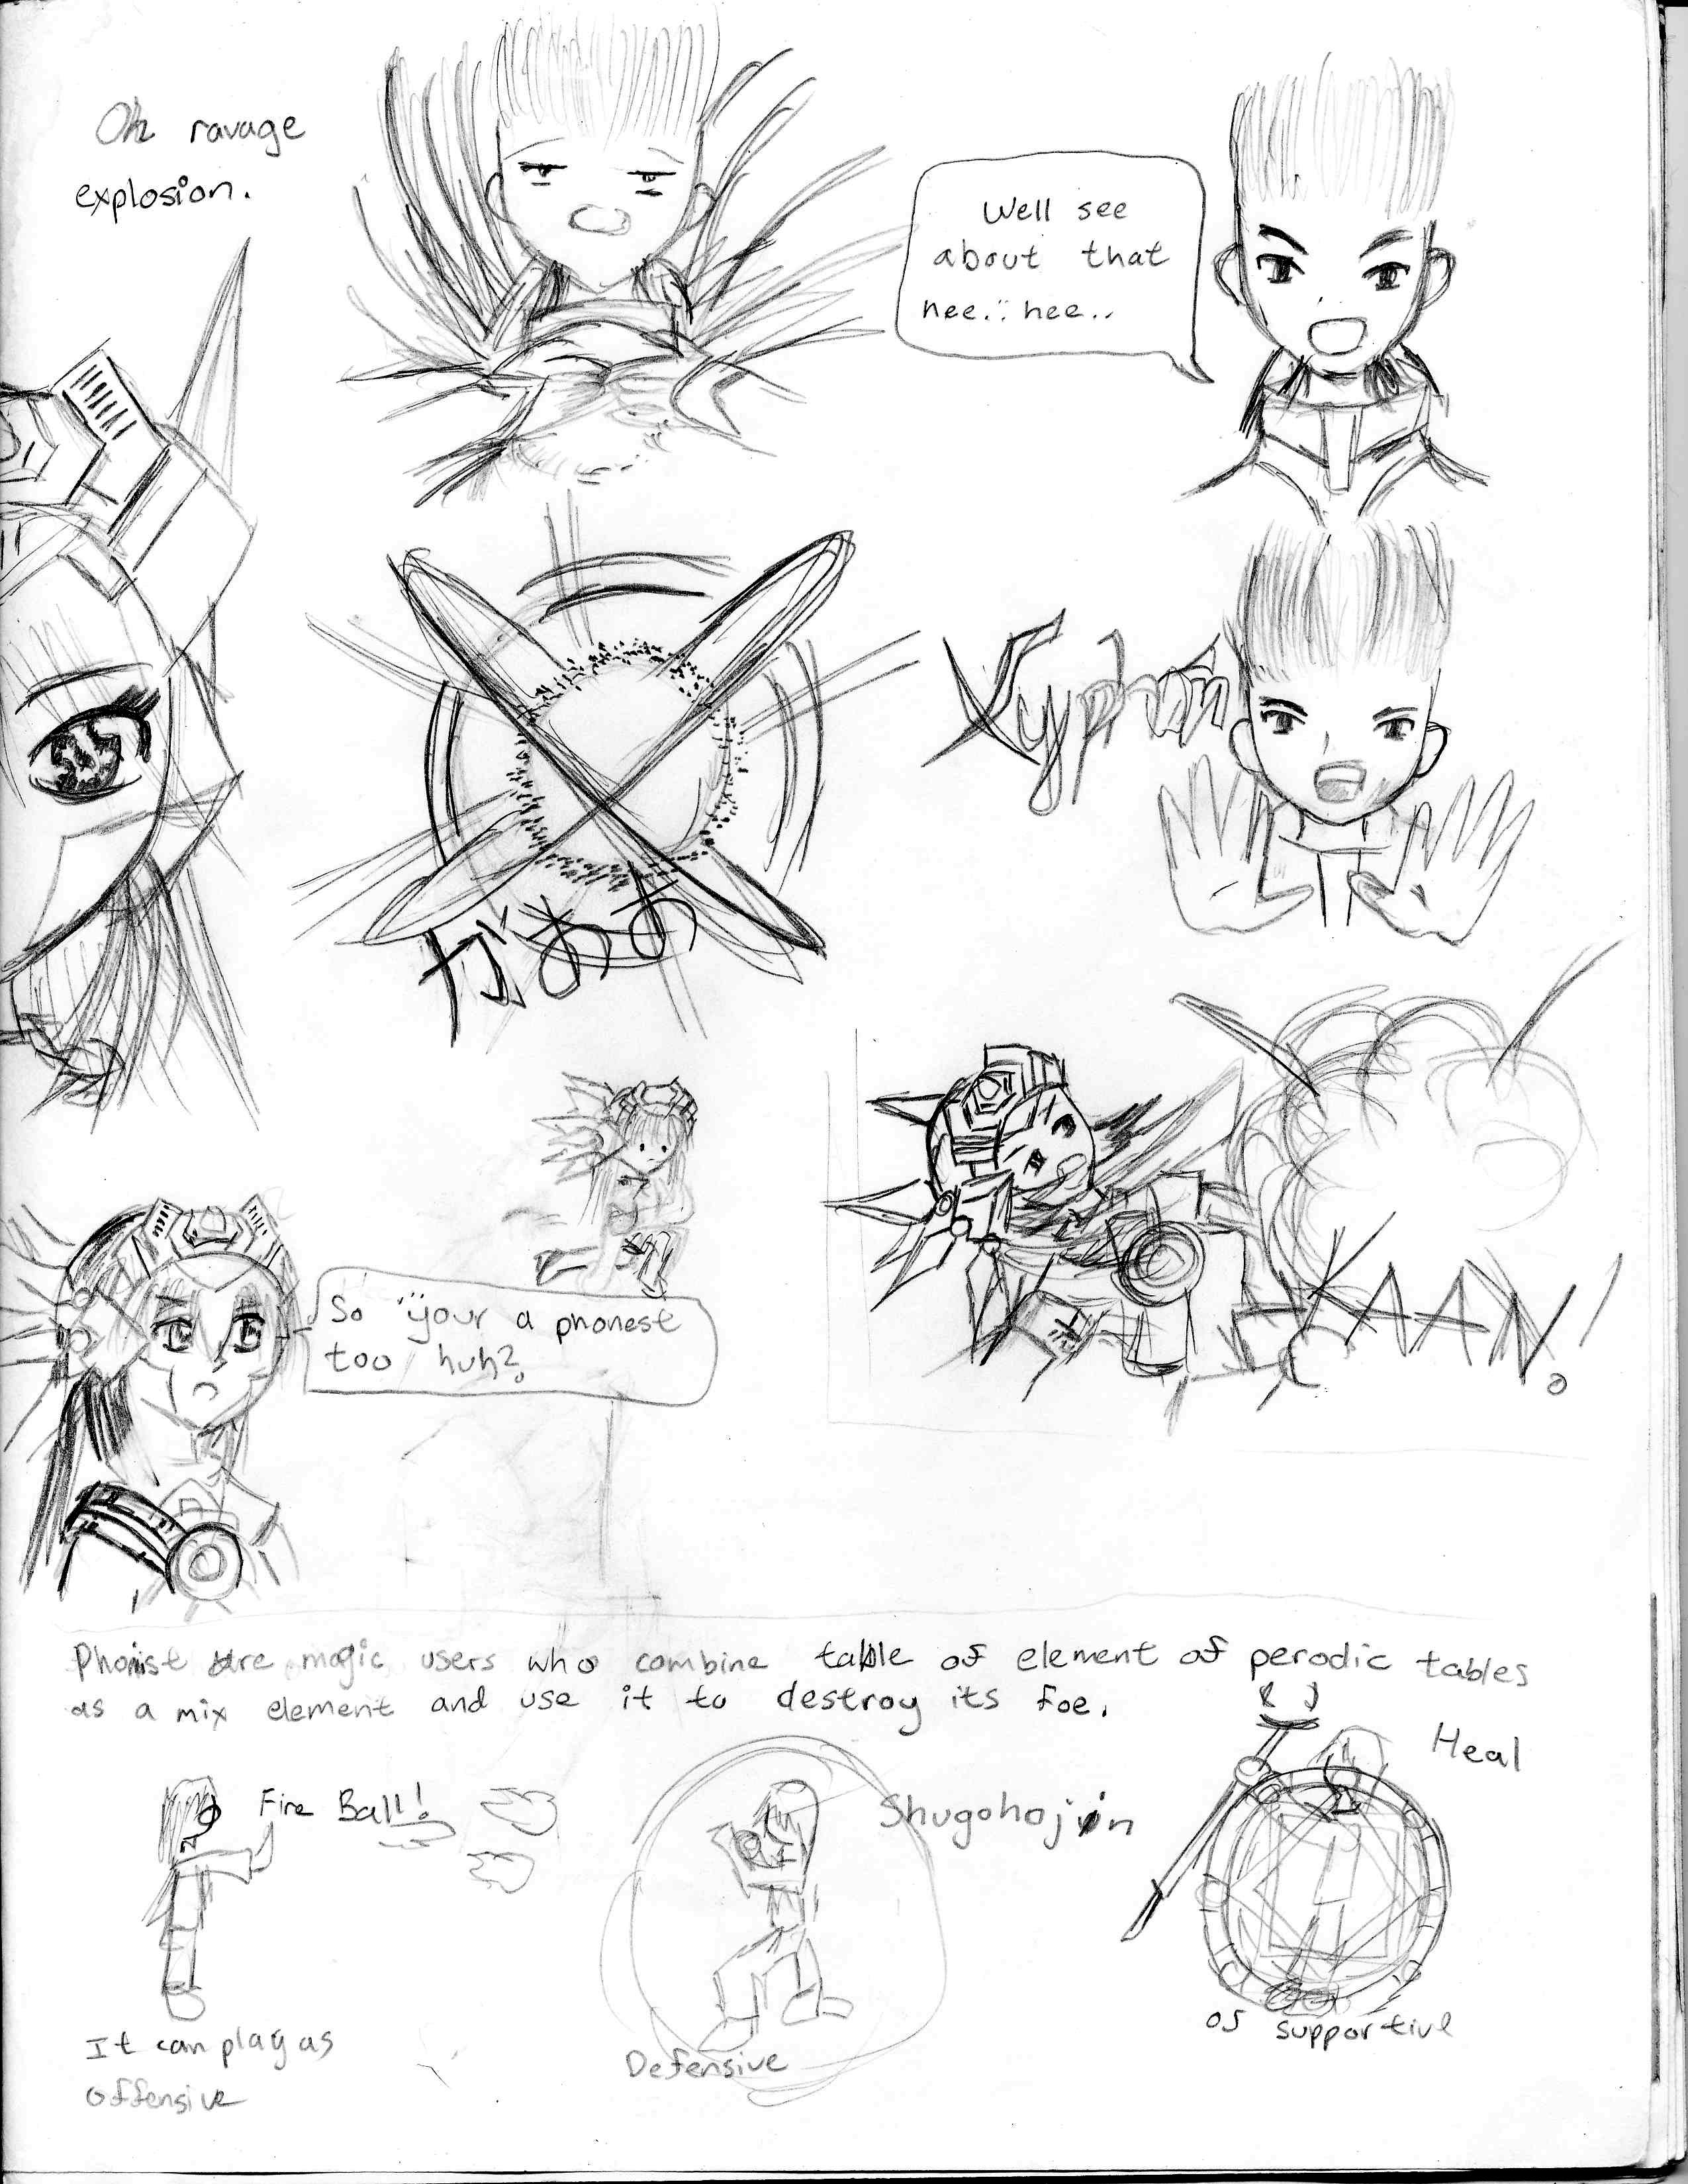 Oh ravage
explosion.
Well see
about that
hee... hee..
Xyphon
がああ
KAAN!
So ... your a phonest
too huh?
Phonist are magic users who combine table of element of perodic tables
as a mix element and use it to destroy its foe.
Fire Ball!
Shugohojin
Heal
It can play as
offensive
Defensive
or supportive